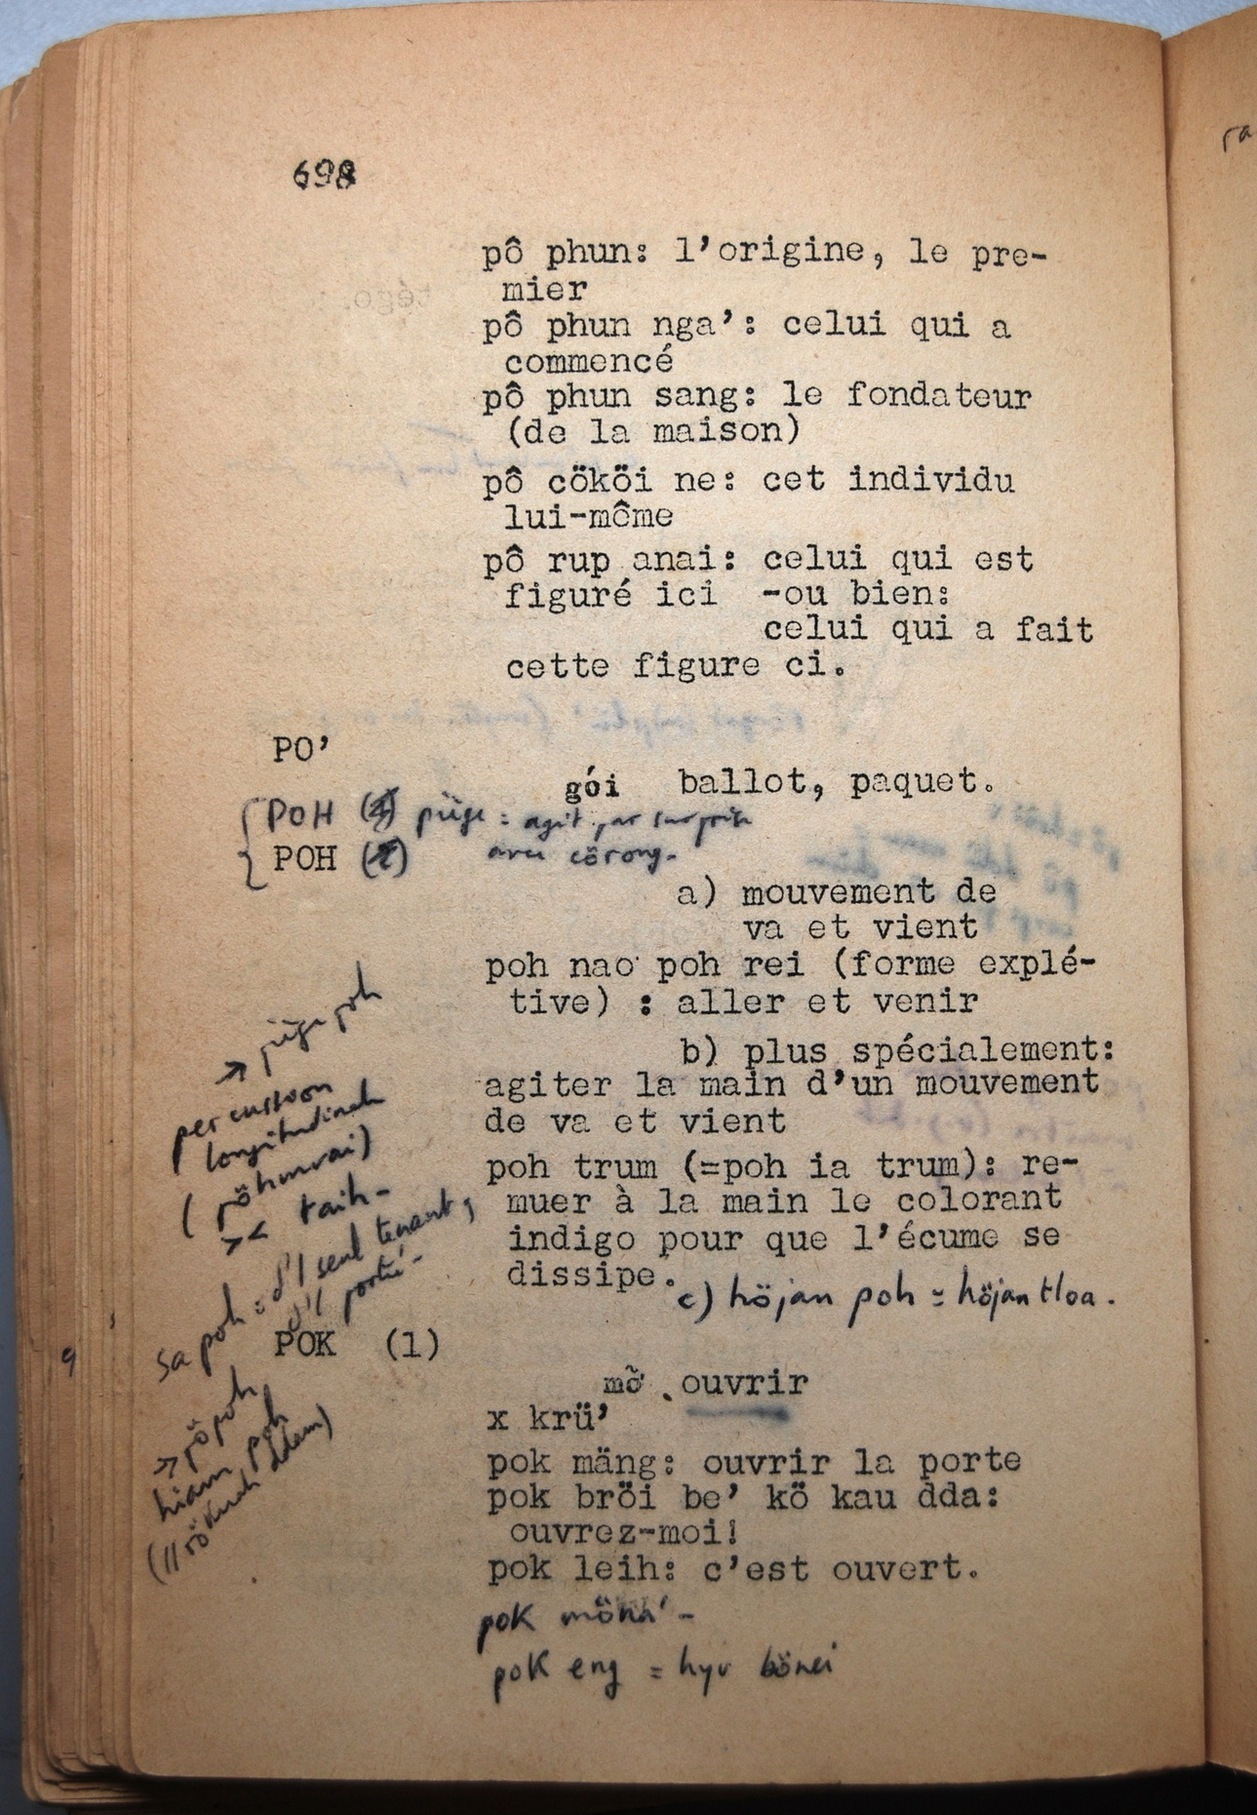 698
pô phun: l'origine, le pre-
mier
pô phun nga': celui qui a
commencé
pô phun sang: le fondateur
(de la maison)
pô cököi ne: cet individu
lui-même
pô rup anai: celui qui est
figuré ici -ou bien:
celui qui a fait
cette figure ci.
PO'
gói ballot, paquet.
POH piège = agit par surprise
POH avec cörong-
a) mouvement de
va et vient
poh nao poh rei (forme explé-
tive) : aller et venir
b) plus spécialement:
agiter la main d'un mouvement
de va et vient
poh trum (=poh ia trum): re-
muer à la main le colorant
indigo pour que l'écume se
dissipe.
c) höjan poh = höjan tloa.
→ piège poh
percussion
longitudinale
( pöhmrai)
>< taih-
sa poh = d'1 seul tenant,
d'1 portée-
POK (1)
9
mở ouvrir
x krü'
pok mäng: ouvrir la porte
pok bröi be' kö kau dda:
ouvrez-moi!
pok leih: c'est ouvert.
→ pöpoh
hiam poh
pok möha' -
pok eng = hyu bönei